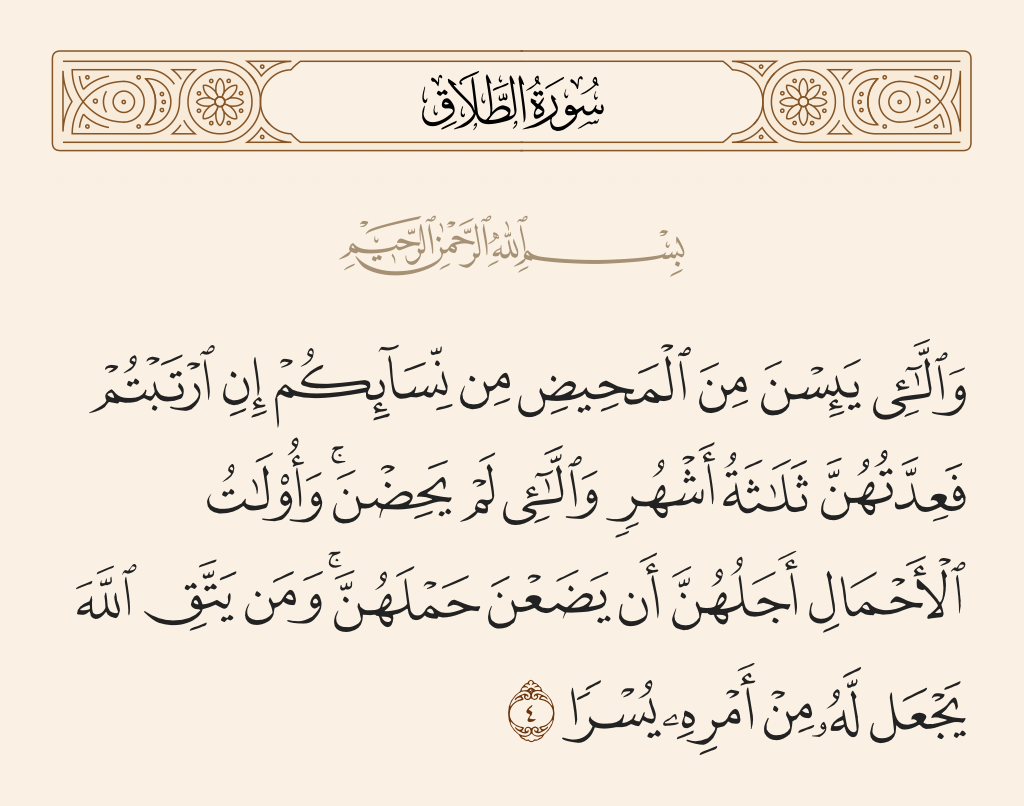 سُورَةُ ٱلطَّلَاقِ
بِسْمِ ٱللَّهِ ٱلرَّحْمَٰنِ ٱلرَّحِيمِ
وَٱلَّـٰٓـِٔى يَئِسْنَ مِنَ ٱلْمَحِيضِ مِن نِّسَآئِكُمْ إِنِ ٱرْتَبْتُمْ
فَعِدَّتُهُنَّ ثَلَـٰثَةُ أَشْهُرٍ وَٱلَّـٰٓـِٔى لَمْ يَحِضْنَ ۚ وَأُو۟لَـٰتُ
ٱلْأَحْمَالِ أَجَلُهُنَّ أَن يَضَعْنَ حَمْلَهُنَّ ۚ وَمَن يَتَّقِ ٱللَّهَ
يَجْعَل لَّهُۥ مِنْ أَمْرِهِۦ يُسْرًا ٤